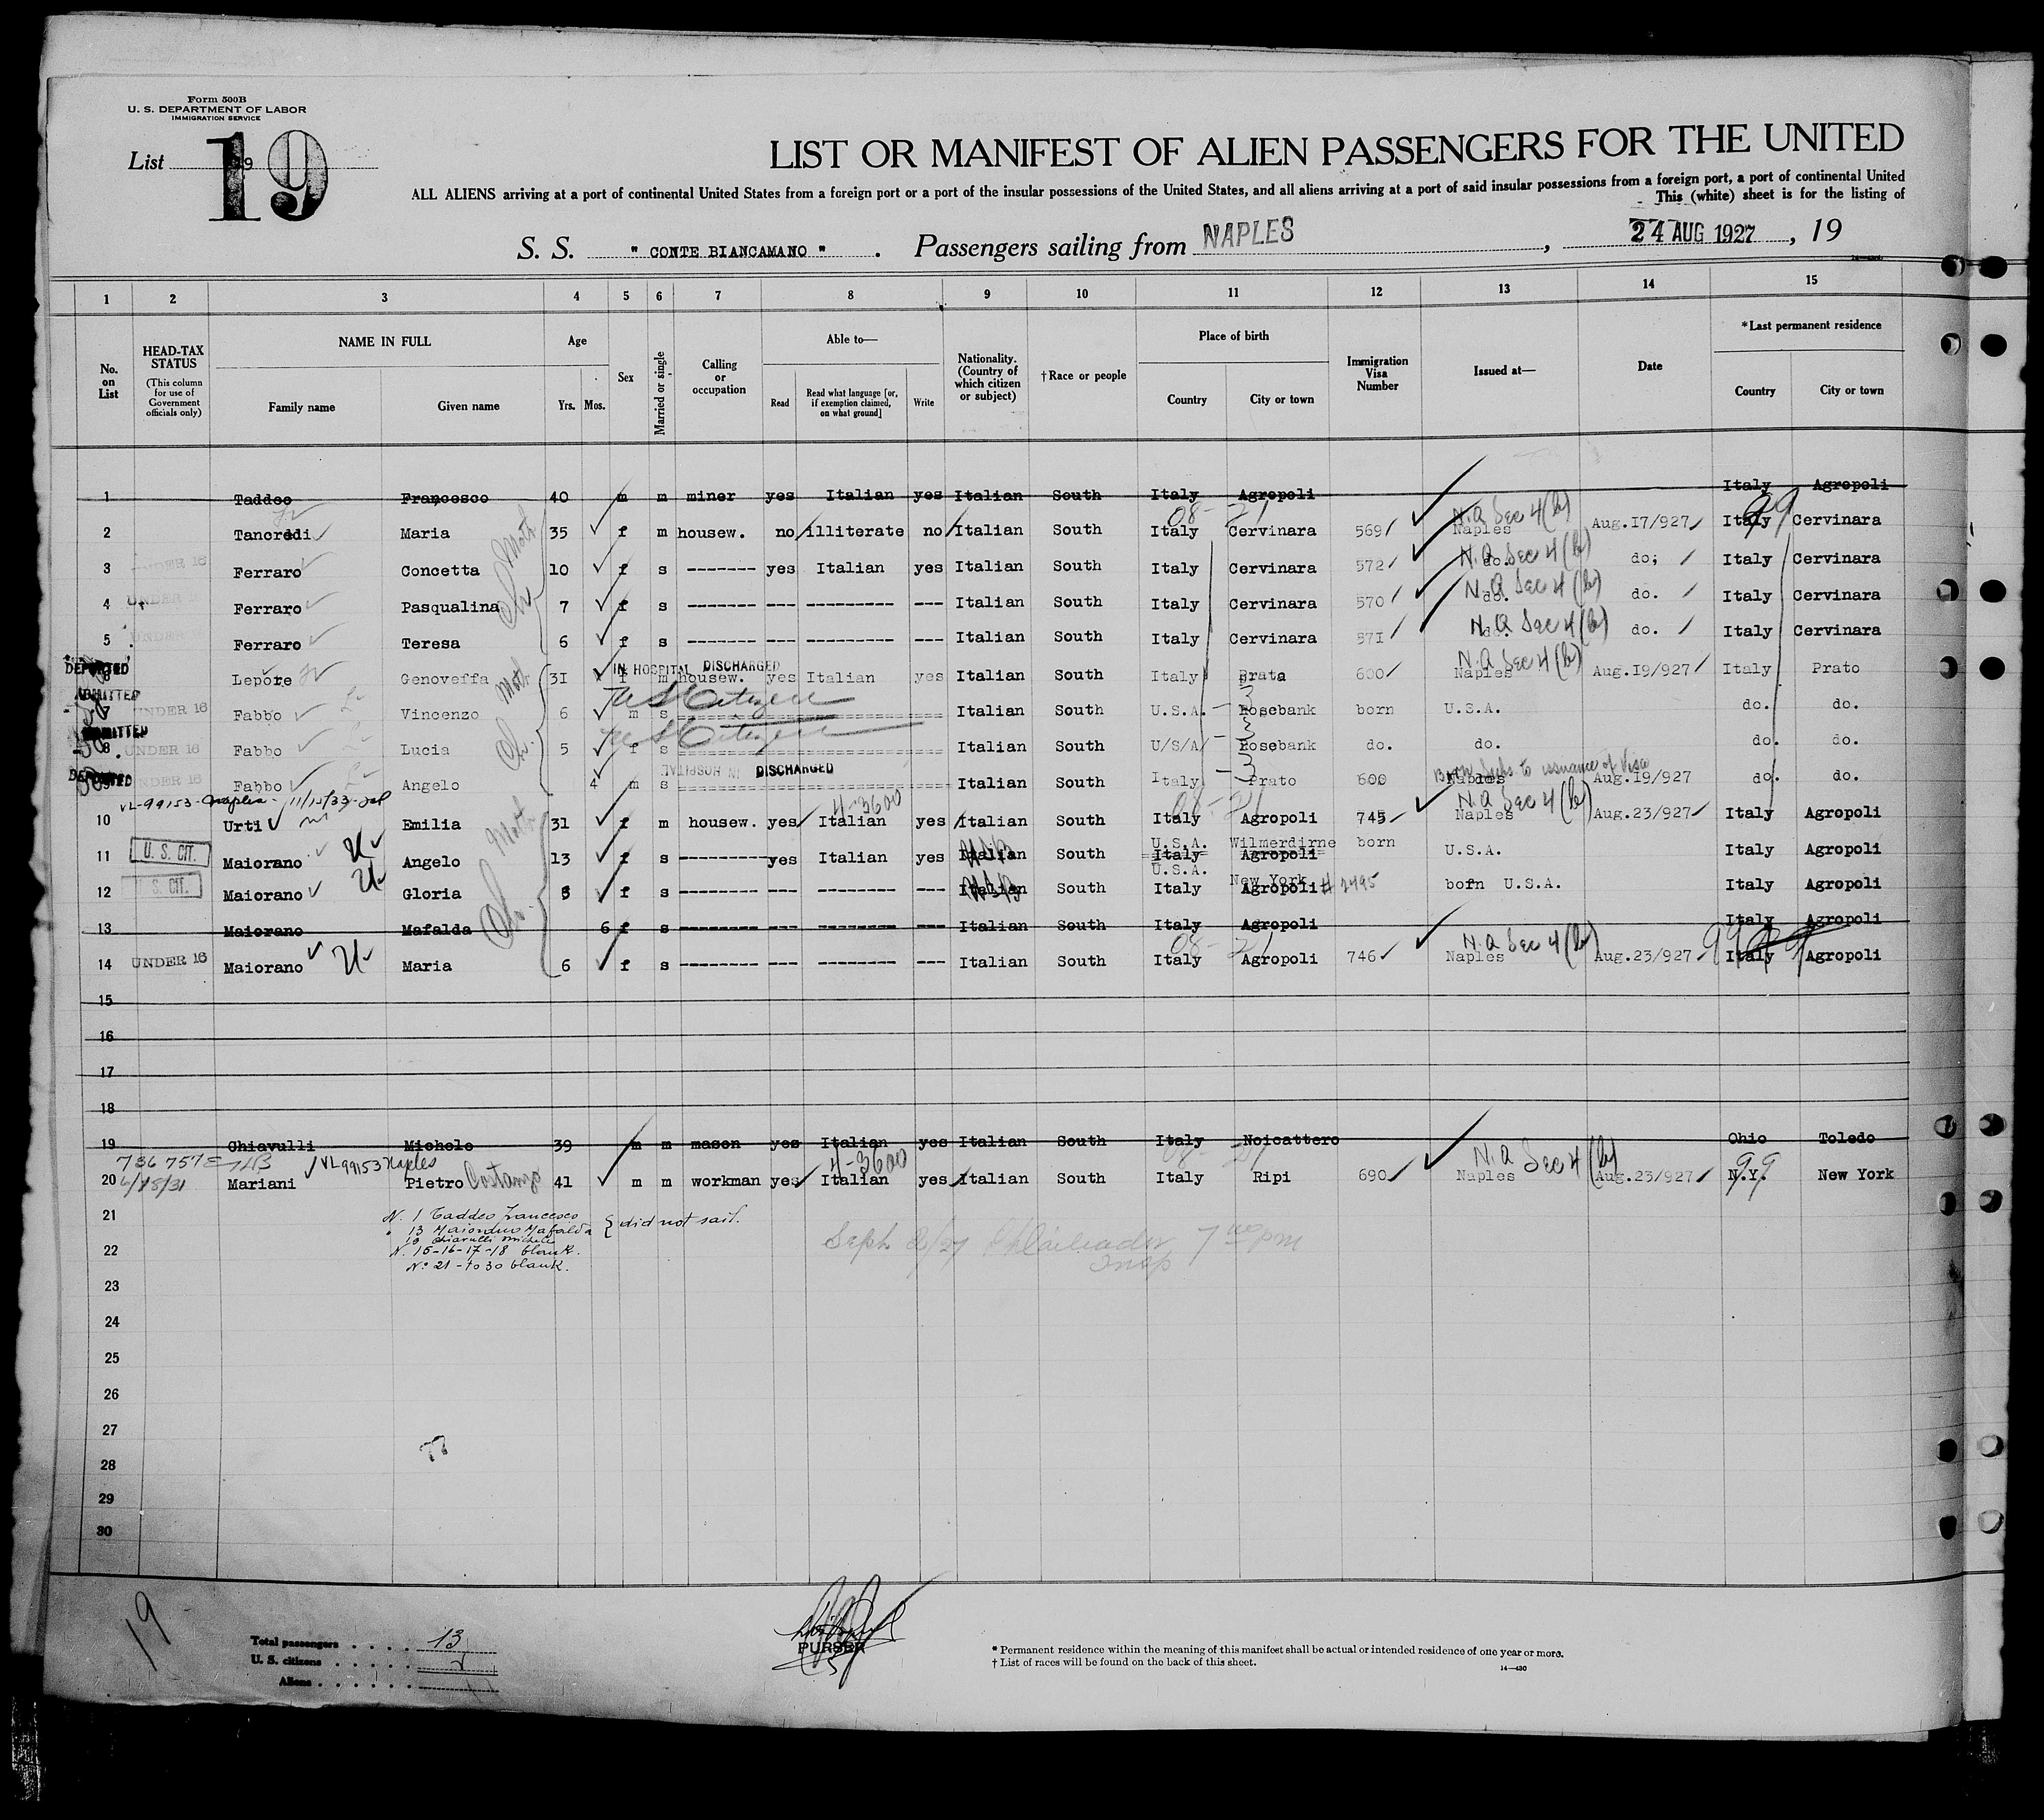 Form 500B
U. S. DEPARTMENT OF LABOR
IMMIGRATION SERVICE
List 19
19
LIST OR MANIFEST OF ALIEN PASSENGERS FOR THE UNITED
ALL ALIENS arriving at a port of continental United States from a foreign port or a port of the insular possessions of the United States, and all aliens arriving at a port of said insular possessions from a foreign port, a port of continental United
This (white) sheet is for the listing of
S. S. " CONTE BIANCAMANO " . Passengers sailing from NAPLES , 24 AUG 1927 , 19
1 2 3 4 5 6 7 8 9 10 11 12 13 14 15
No. on List
HEAD-TAX STATUS
(This column for use of Government officials only)
NAME IN FULL
Family name Given name
Age
Yrs. Mos.
Sex
Married or single
Calling or occupation
Able to—
Read
Read what language [or, if exemption claimed, on what ground]
Write
Nationality. (Country of which citizen or subject)
†Race or people
Place of birth
Country City or town
Immigration Visa Number
Issued at—
Date
*Last permanent residence
Country City or town
1 Taddeo Francesco 40 m m miner yes Italian yes Italian South Italy Agropoli Italy Agropoli
08- 21 N.A Sec 4 (b) 99
2 Tancredi Maria 35 f m housew. no illiterate no Italian South Italy Cervinara 569 Naples Aug.17/927 Italy Cervinara
UNDER 16
3 Ferraro Concetta 10 f s ------- yes Italian yes Italian South Italy Cervinara 572 do. N.A Sec 4 (b) do; Italy Cervinara
UNDER
4 Ferraro Pasqualina 7 f s ------- --- --------- --- Italian South Italy Cervinara 570 do. N.A Sec 4 (b) do. Italy Cervinara
UNDER
5 Ferraro Teresa 6 f s ------- --- --------- --- Italian South Italy Cervinara 571 do. N.A Sec 4 (b) do. Italy Cervinara
DEPORTED IN HOSPITAL DISCHARGED
6 Lepore Genoveffa 31 f m housew. yes Italian yes Italian South Italy Prata 600 Naples N.A Sec 4 (b) Aug.19/927 Italy Prato
ADMITTED
7 UNDER 16 Fabbo Vincenzo 6 m s US Citizen Italian South U.S.A. Rosebank born U.S.A. do. do.
ADMITTED
8 UNDER 16 Fabbo Lucia 5 f s US Citizen Italian South U/S/A/ Rosebank do. do. do. do.
DEPORTED IN HOSPITAL DISCHARGED
9 UNDER 16 Fabbo Angelo 4 m s Italian South Italy Prato 600 Naples Born Subs. to issuance of Visa Aug.19/927 do. do.
VL-99153-Naples- 11/15/33
4-3600 08-21
10 Urti Emilia 31 f m housew. yes Italian yes Italian South Italy Agropoli 745 Naples N.A Sec 4 (b) Aug.23/927 Italy Agropoli
U. S. CIT. U.S.A. Wilmerdirne born
11 Maiorano Angelo 13 f s --------- yes Italian yes Italian South Italy Agropoli U.S.A. Italy Agropoli
U. S. CIT. U.S.A. New York
12 Maiorano Gloria 8 f s ------- --- -------- --- Italian South Italy Agropoli # 2495 born U.S.A. Italy Agropoli
13 Maiorano Mafalda 6 f s ------- --- -------- --- Italian South Italy Agropoli Italy Agropoli
08- 21
14 UNDER 16 Maiorano Maria 6 f s ------- --- -------- --- Italian South Italy Agropoli 746 Naples N.A Sec 4 (b) Aug.23/927 Italy Agropoli
15
16
17
18
19 Chiavulli Michele 39 m m mason yes Italian yes Italian South Italy Noicattero Ohio Toledo
VL 99153 Naples 4-3600 N.A Sec 4 (b) 99
20 6/18/31 Mariani Pietro Costanzo 41 m m workman yes Italian yes Italian South Italy Ripi 690 Naples Aug.23/927 N.Y. New York
21
N. 1 Taddeo Francesco
" 13 Maiorano Mafalda } did not sail.
19 Chiavulli Michele
22
N. 15-16-17-18 blank.
N° 21 - to 30 blank.
Sept. 2/27 7 pm
Insp
23
24
25
26
27
28
29
30
19
Total passengers . . . . 13
U. S. citizens . . . . .
Aliens . . . . . .
PURSER
* Permanent residence within the meaning of this manifest shall be actual or intended residence of one year or more.
† List of races will be found on the back of this sheet.
14—430